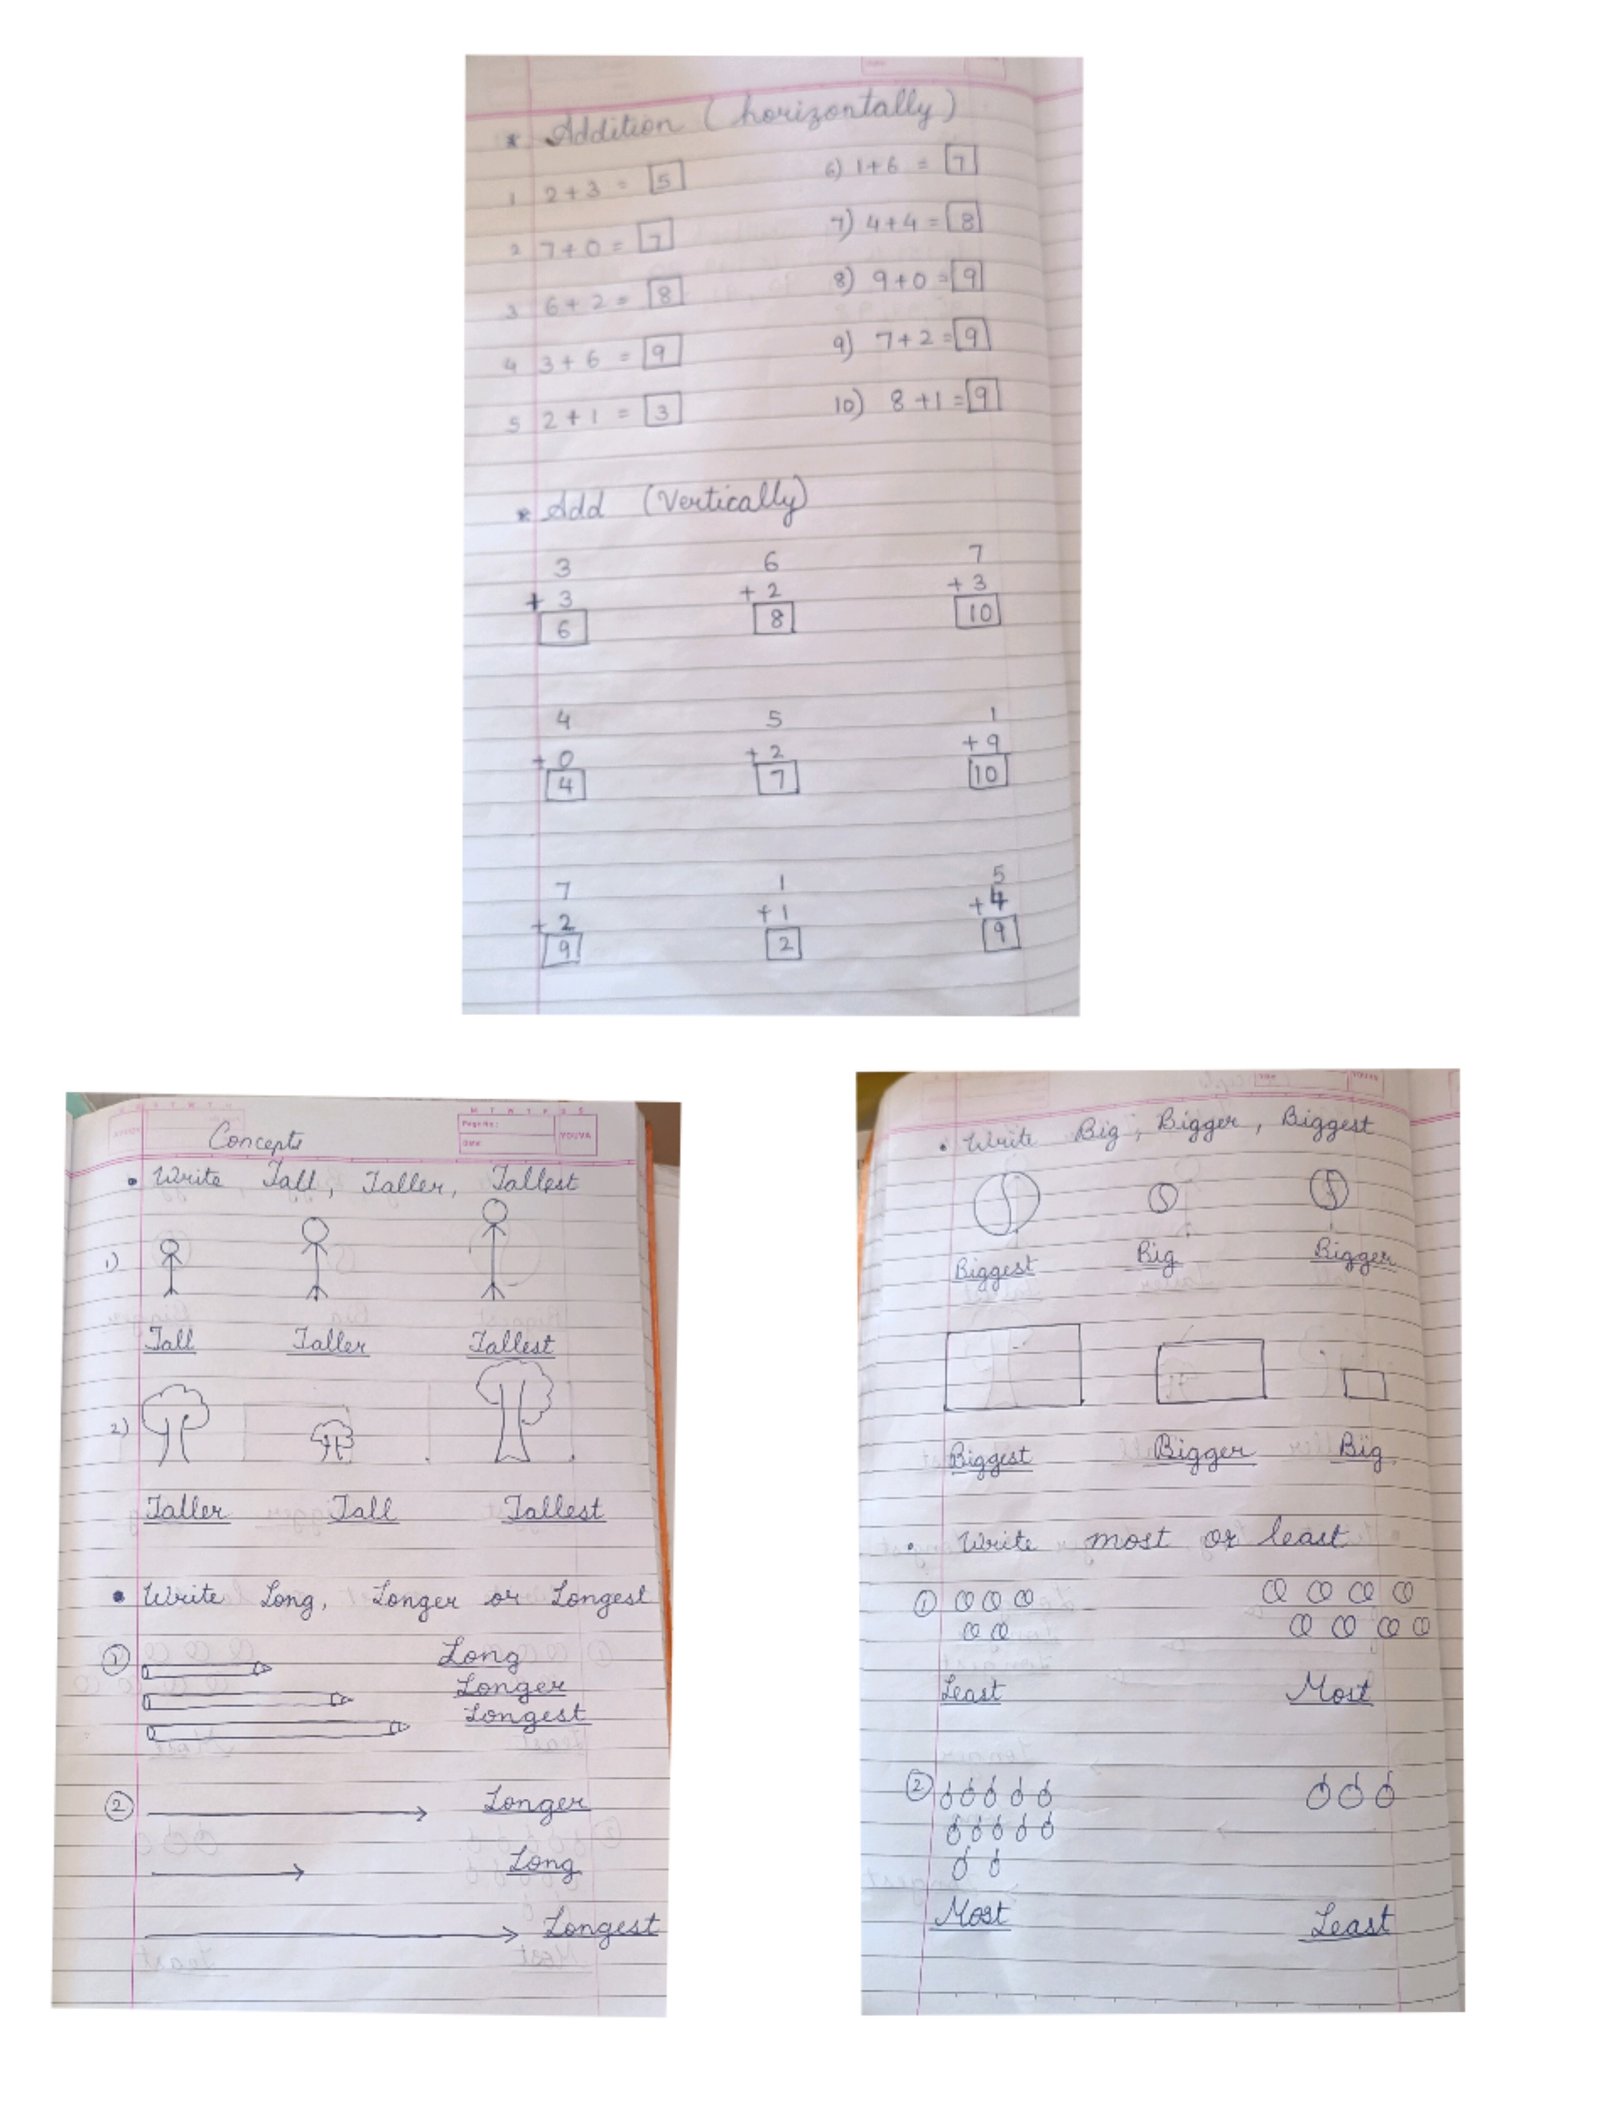 * Addition (horizontally)
1 2+3 = 5
2 7+0 = 7
3 6+2 = 8
4 3+6 = 9
5 2+1 = 3
6) 1+6 = 7
7) 4+4 = 8
8) 9+0 = 9
9) 7+2 = 9
10) 8+1 = 9
* Add (Vertically)
3 6 7
+ 3 + 2 + 3
6 8 10
4 5 1
+ 0 + 2 + 9
4 7 10
7 1 5
+ 2 + 1 + 4
9 2 9
M T W T F S S
Page No.:
Date:
YOUVA
Concepts
• Write Tall, Taller, Tallest
1)
Tall Taller Tallest
2)
Taller Tall Tallest
• Write Long, Longer or Longest
① Long
Longer
Longest
② Longer
Long
Longest
• Write Big, Bigger, Biggest
Biggest Big Bigger
Biggest Bigger Big
• Write most or least
①
Least Most
②
Most Least